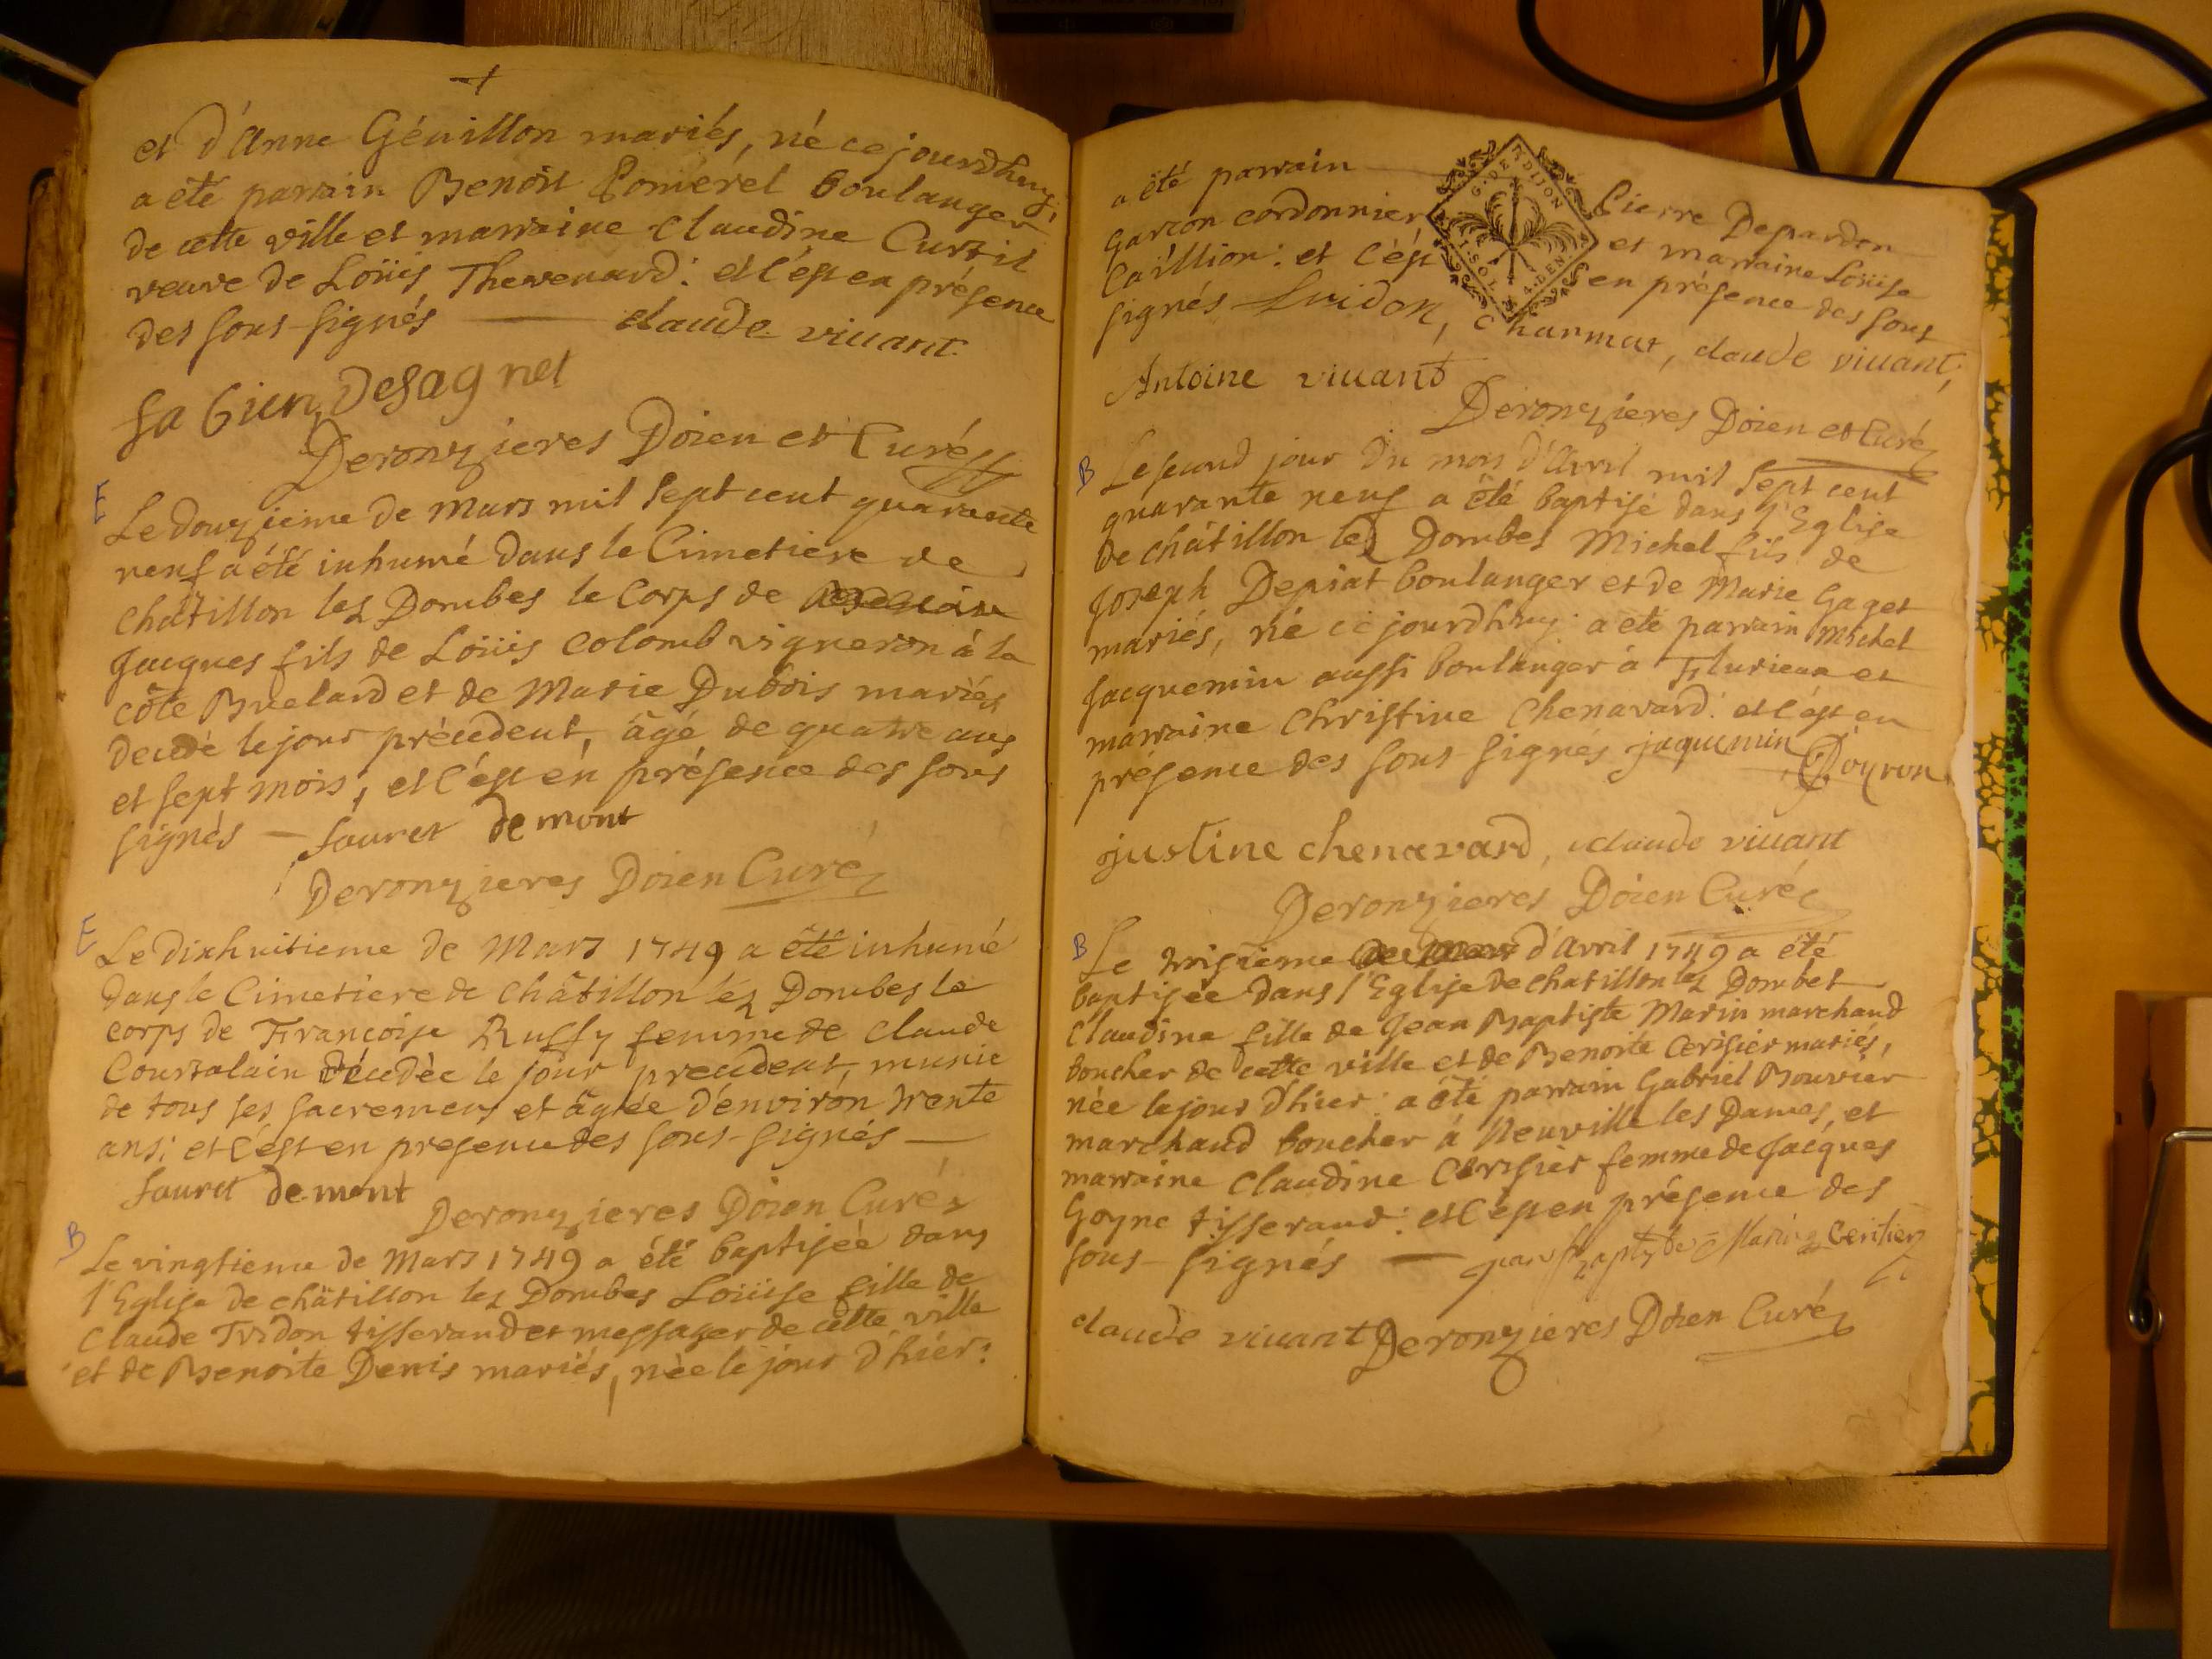 et d'Anne Génillon mariés, né ce jourdhuy,
a été parrain Benoît Pomérel boulanger
de cette ville et marraine Claudine Curtil
veuve de Loüis Thevenard: et c'est en présence
des sous-signés claude viuant
fabien desagnel
Deronzieres Doien et Curé
E
Le douzieme de Mars mil sept cent quarante
neuf a été inhumé dans le Cimetiere de
châtillon lez Dombes le corps de
Jacques fils de Loüis Colomb vigneron à la
côte Buelard et de Marie Dubois mariés
decedé le jour précedent, âgé de quatre ans
et sept mois, et c'est en présence des sous
signés — fauret demont
Deronzieres Doien Curé
E
Le dixhuitieme de Mars 1749 a été inhumé
dans le Cimetiere de Châtillon lez Dombes le
corps de Françoise Ruffy femme de Claude
Courtalain décedée le jour précedent, munie
de tous ses sacremens et âgée d'environ trente
ans: et c'est en presence des sous-signés —
fauret demont
Deronzieres Doien Curé
B
Le vingtieme de Mars 1749 a été baptisée dans
l'Eglise de châtillon lez Dombes Loüise fille de
Claude Tridon tisserand et messager de cette ville
et de Benoite Denis mariés, née le jour d'hiér:
a été parrain Pierre Depardon
garçon cordonnier et marraine Loüise
Caillion: et c'est en présence des sous
signés Luidon, Charmat, claude viuant,
Antoine viuant
Deronzieres Doien et Curé
B
Le second jour du mois d'Avril mil sept cent
quarante neuf a été baptisé dans l'Eglise
de châtillon lez Dombes Michel fils de
Joseph Depiat boulanger et de Marie Gaget
mariés, né ce jourdhuy: a été parrain Michel
Jacquemin aussi boulanger à Flurieux et
marraine Christine Chenavard: et c'est en
présence des sous-signés jaquemin, Doyron
justine chenavard, claude viuant
Deronzieres Doien Curé
B
Le troisieme d'Avril 1749 a été
baptisée dans l'Eglise de chatillon lez Dombes
Claudine fille de Jean Baptiste Marin marchand
boucher de cette ville et de Benoite Cerisier mariés,
née le jour d'hier: a été parrain Gabriel Bouvier
marchand boucher à Neuville les Dames, et
marraine Claudine Cerisier femme de Jacques
Goyne tisserand: et c'est en présence des
sous-signés — Marin Ceritier
claude viuant Deronzieres Doien Curé
G. DE DIJON
1. SOL. 4. DEN.